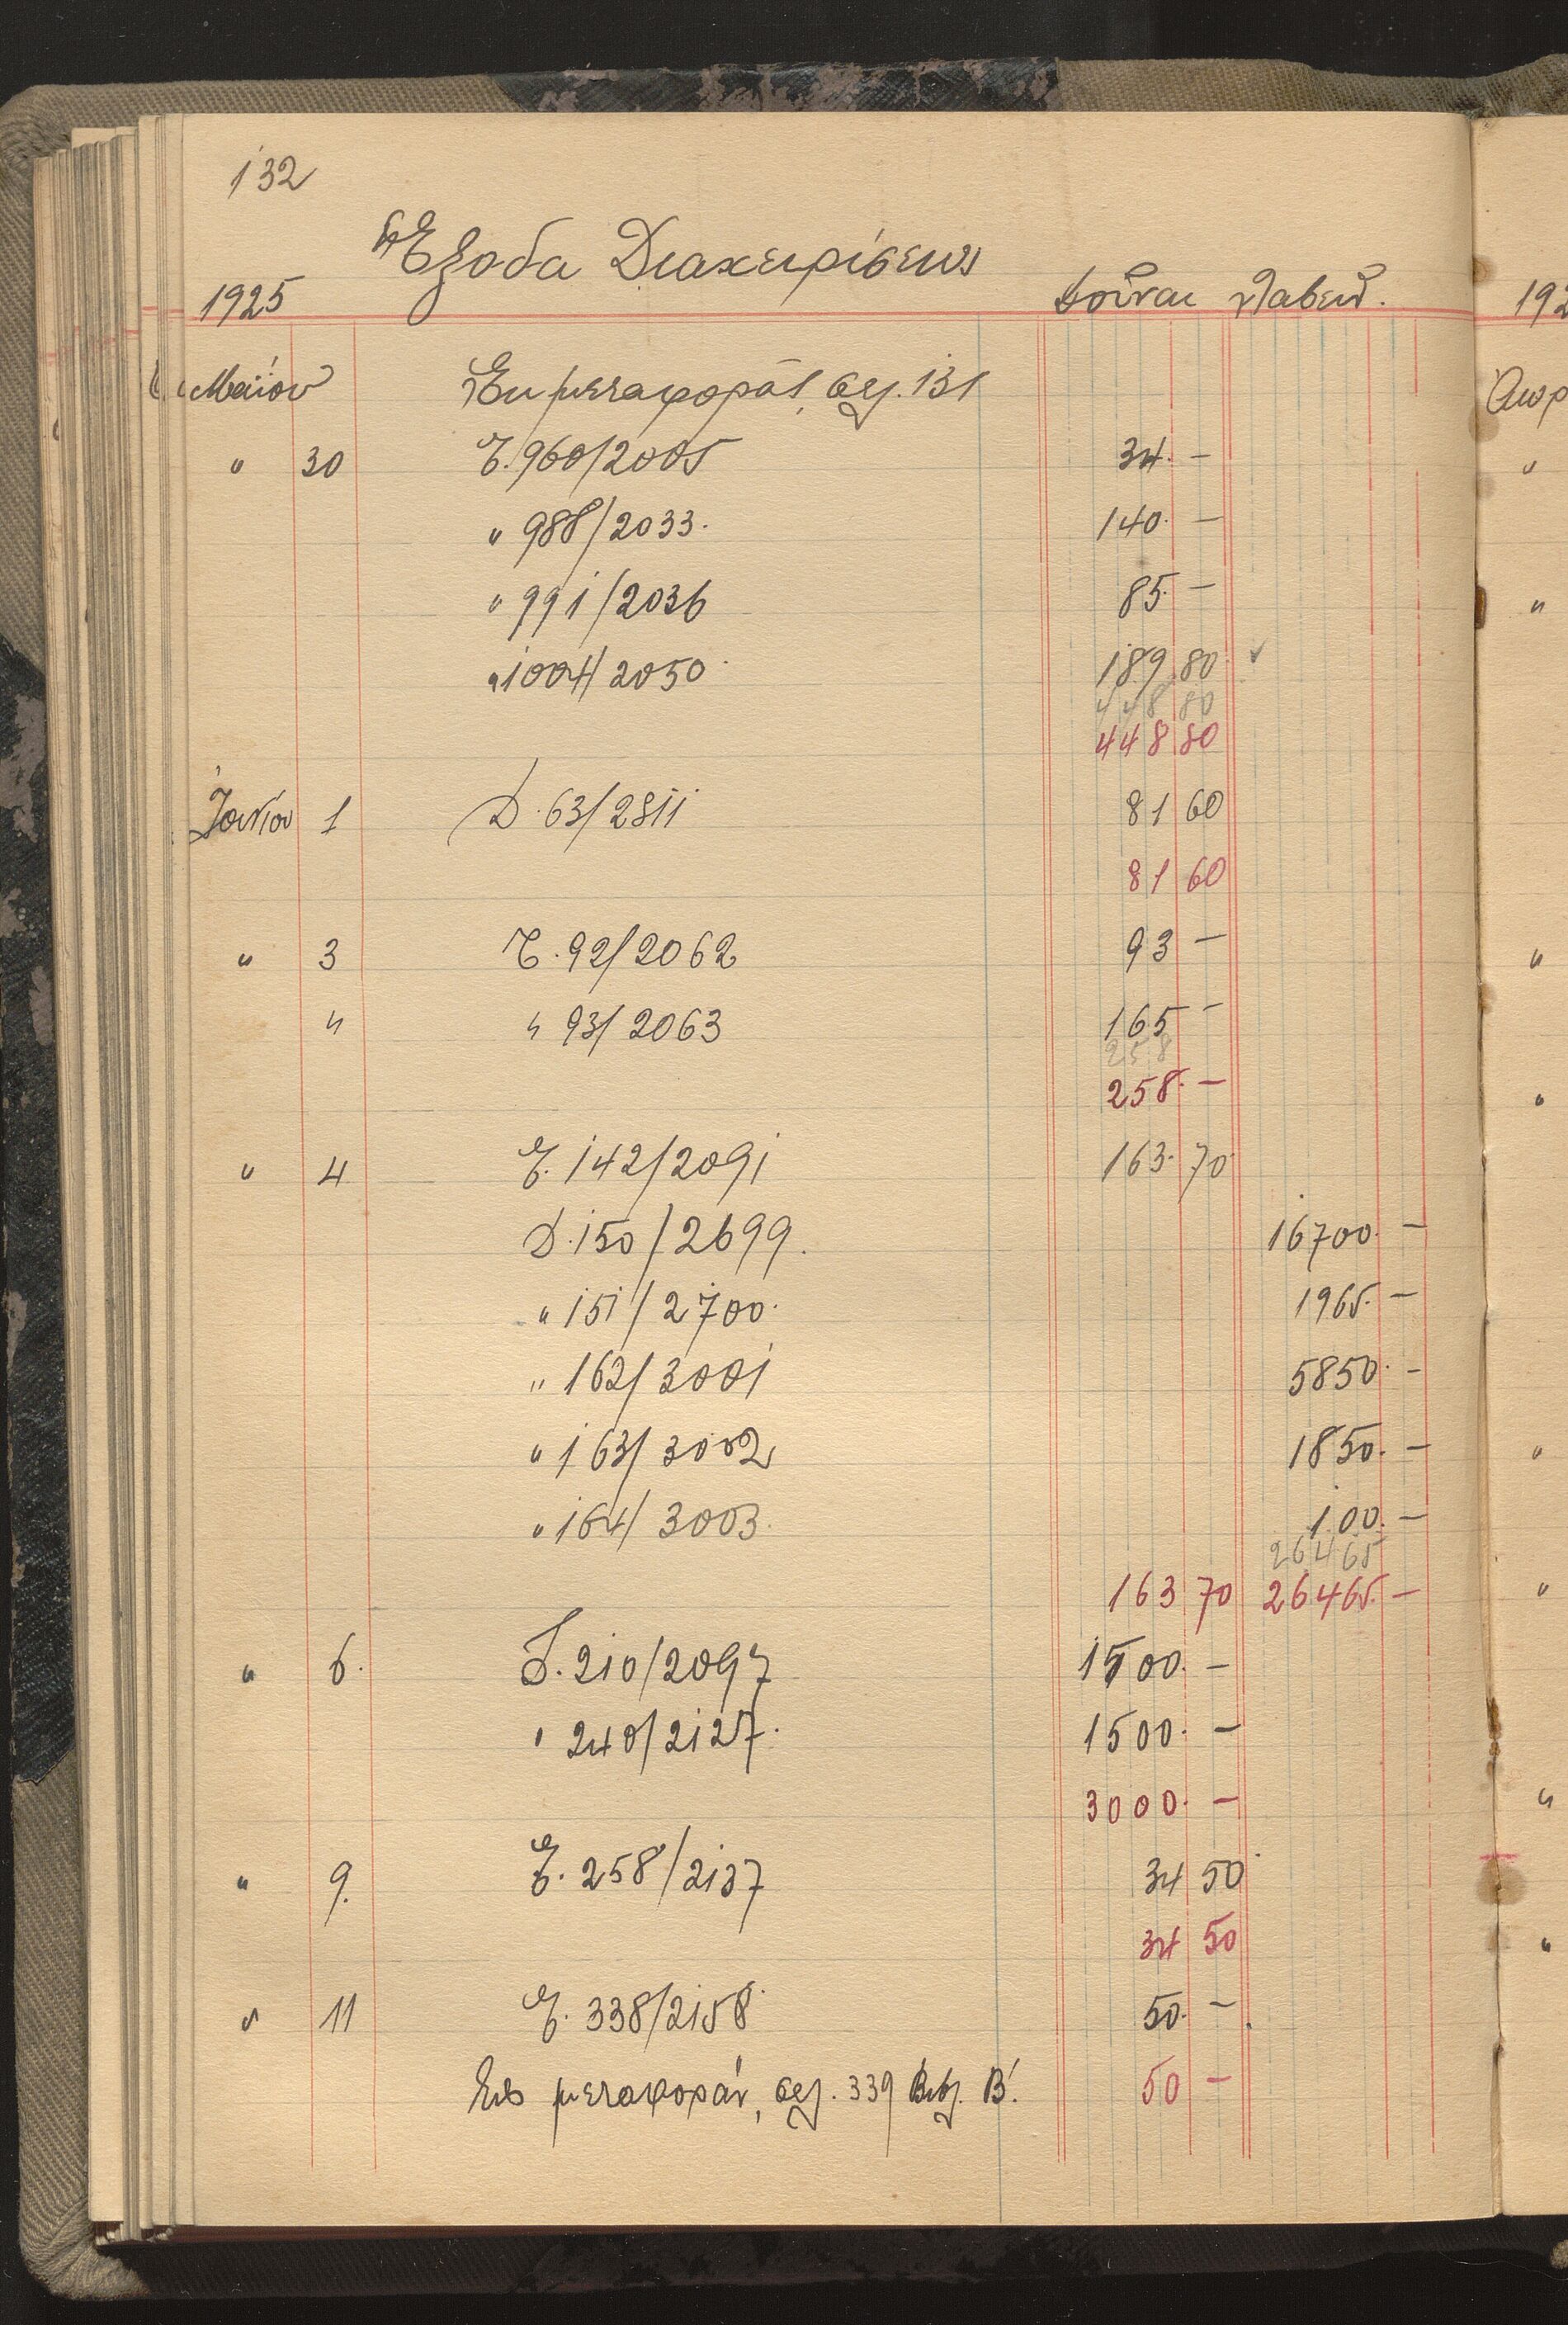 132
Ἔξοδα Διαχειρίσεως
1925 Δοῦναι Λαβεῖν.
Μαΐου Ἐκ μεταφορᾶς, σελ. 131
" 30 Ε. 960/2005 34. -
" 988/2033. 140. -
" 991/2036 85. -
" 1004/2050. 189 80
448 80
448 80
Ἰουνίου 1 Δ. 63/2811 81 60
81 60
" 3 Ε. 92/2062 93 -
" " 93/2063 165 -
258
258. -
" 4 Ε. 142/2091 163. 70
Δ. 150/2699. 16700. -
" 151/2700. 1965. -
" 162/3001 5850. -
" 163/3002 1850. -
" 164/3003. 100. -
26465
163 70 26465. -
" 6. 210/2097 1500. -
" 240/2127. 1500. -
3000. -
" 9. Ε. 258/2137 34 50
34 50
" 11 Ε. 338/2158 50. -
Εἰς μεταφοράν, σελ. 339 Βιβλ. Β΄. 50 -
192